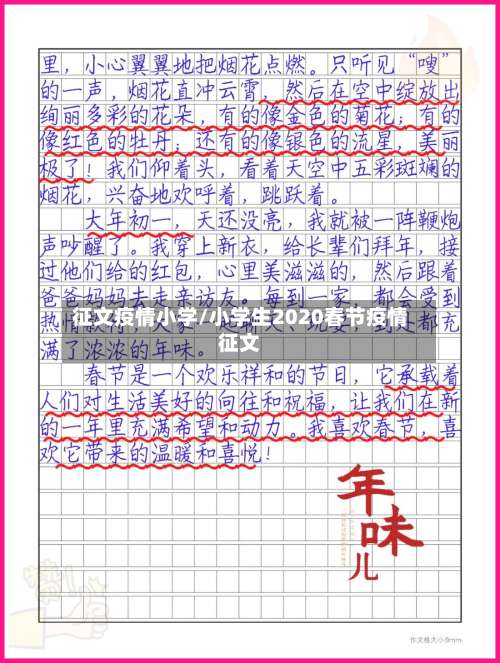 里，小心翼翼地把烟花点燃。只听见“嗖”
的一声，烟花直冲云霄，然后在空中绽放出
绚丽多彩的花朵，有的像金色的菊花；有的
像红色的牡丹；还有的像银色的流星，美丽
极了！我们仰着头，看着天空中五彩斑斓的
烟花，兴奋地欢呼着，跳跃着。
大年初一，天还没亮，我就被一阵鞭炮
声吵醒了。我穿上新衣，给长辈们拜年，接
过他们给的红包，心里美滋滋的，然后跟着
爸爸妈妈去走亲访友。每到一家，都会受到
热情款待
到处都充
征文疫情小学/小学生2020春节疫情
征文
满了浓浓的年味。
春节是一个欢乐祥和的节日，它承载着
人们对生活美好的向往和祝福，让我们在新
的一年里充满希望和动力。我喜欢春节，喜
欢它带来的温暖和喜悦！
年味儿
棒!
作文格大小9mm